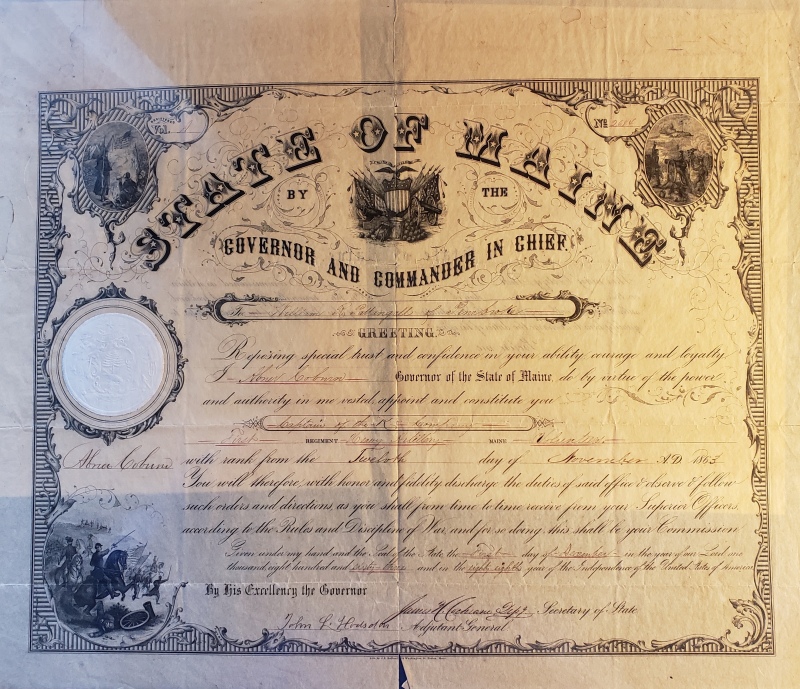 Vol.
No.
STATE OF MAINE
BY THE
GOVERNOR AND COMMANDER IN CHIEF
To William R. Pattangall of Pembroke
GREETING.
Reposing special trust and confidence in your ability courage and loyalty
I Abner Coburn Governor of the State of Maine, do by virtue of the power
and authority in me vested, appoint and constitute you
Captain of Company
First REGIMENT Heavy Artillery MAINE Volunteers
Abner Coburn with rank from the Twelfth day of November A.D. 1863
You will therefore, with honor and fidelity discharge the duties of said office & observe & follow
such orders and directions, as you shall from time to time receive from your Superior Officers,
according to the Rules and Discipline of War, and for so doing this shall be your Commission
Given under my hand and the Seal of the State, the First day of December in the year of our Lord one
thousand eight hundred and sixty three and in the eighty eighth year of the Independence of the United States of America
By His Excellency the Governor
James H. Cochrane, Dept. Secretary of State
John L. Hodsdon Adjutant General